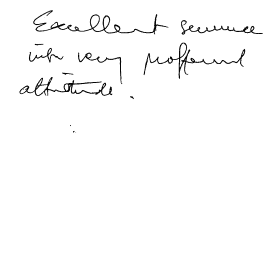 Excellent service
with very proffesional
attitude.